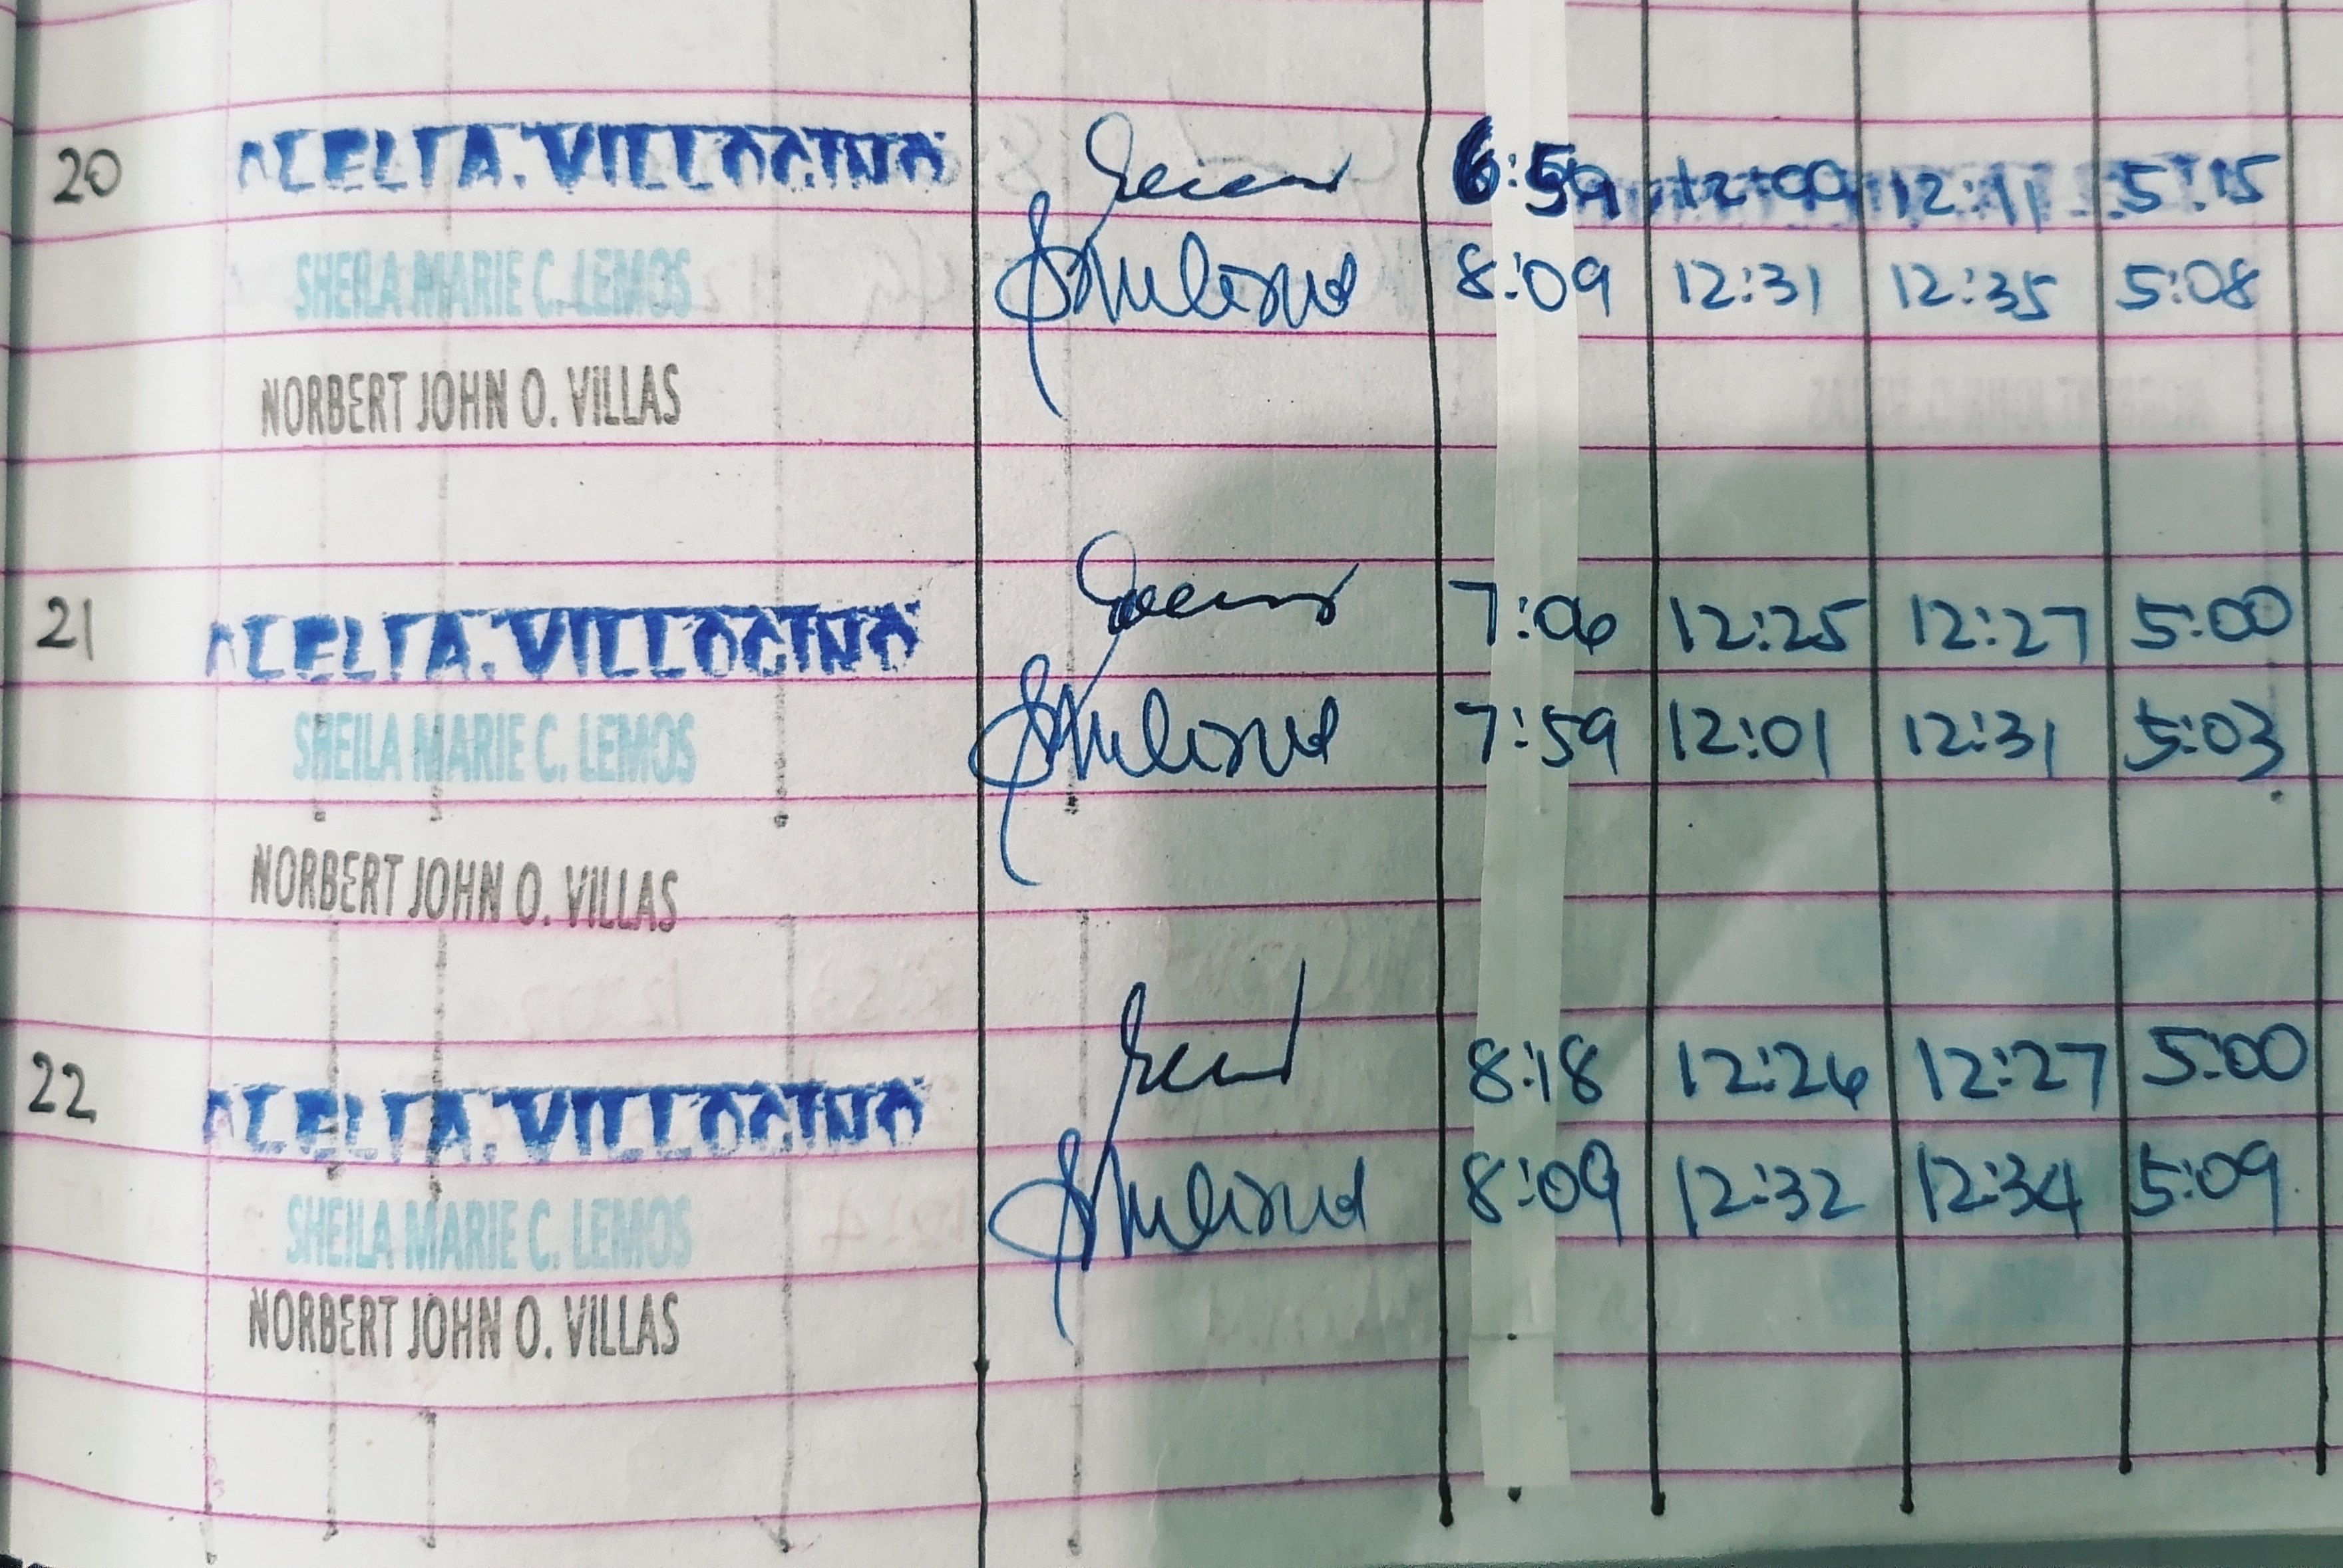 20 VILLOCINO 12:09 5:15
SHEILA MARIE C. LEMOS 8:09 12:31 12:35 5:08
NORBERT JOHN O. VILLAS
21 VILLOCINO 7:06 12:25 12:27 5:00
SHEILA MARIE C. LEMOS 7:59 12:01 12:31 5:03
NORBERT JOHN O. VILLAS
22 VILLOCINO 8:18 12:26 12:27 5:00
SHEILA MARIE C. LEMOS 8:09 12:32 12:34 5:09
NORBERT JOHN O. VILLAS